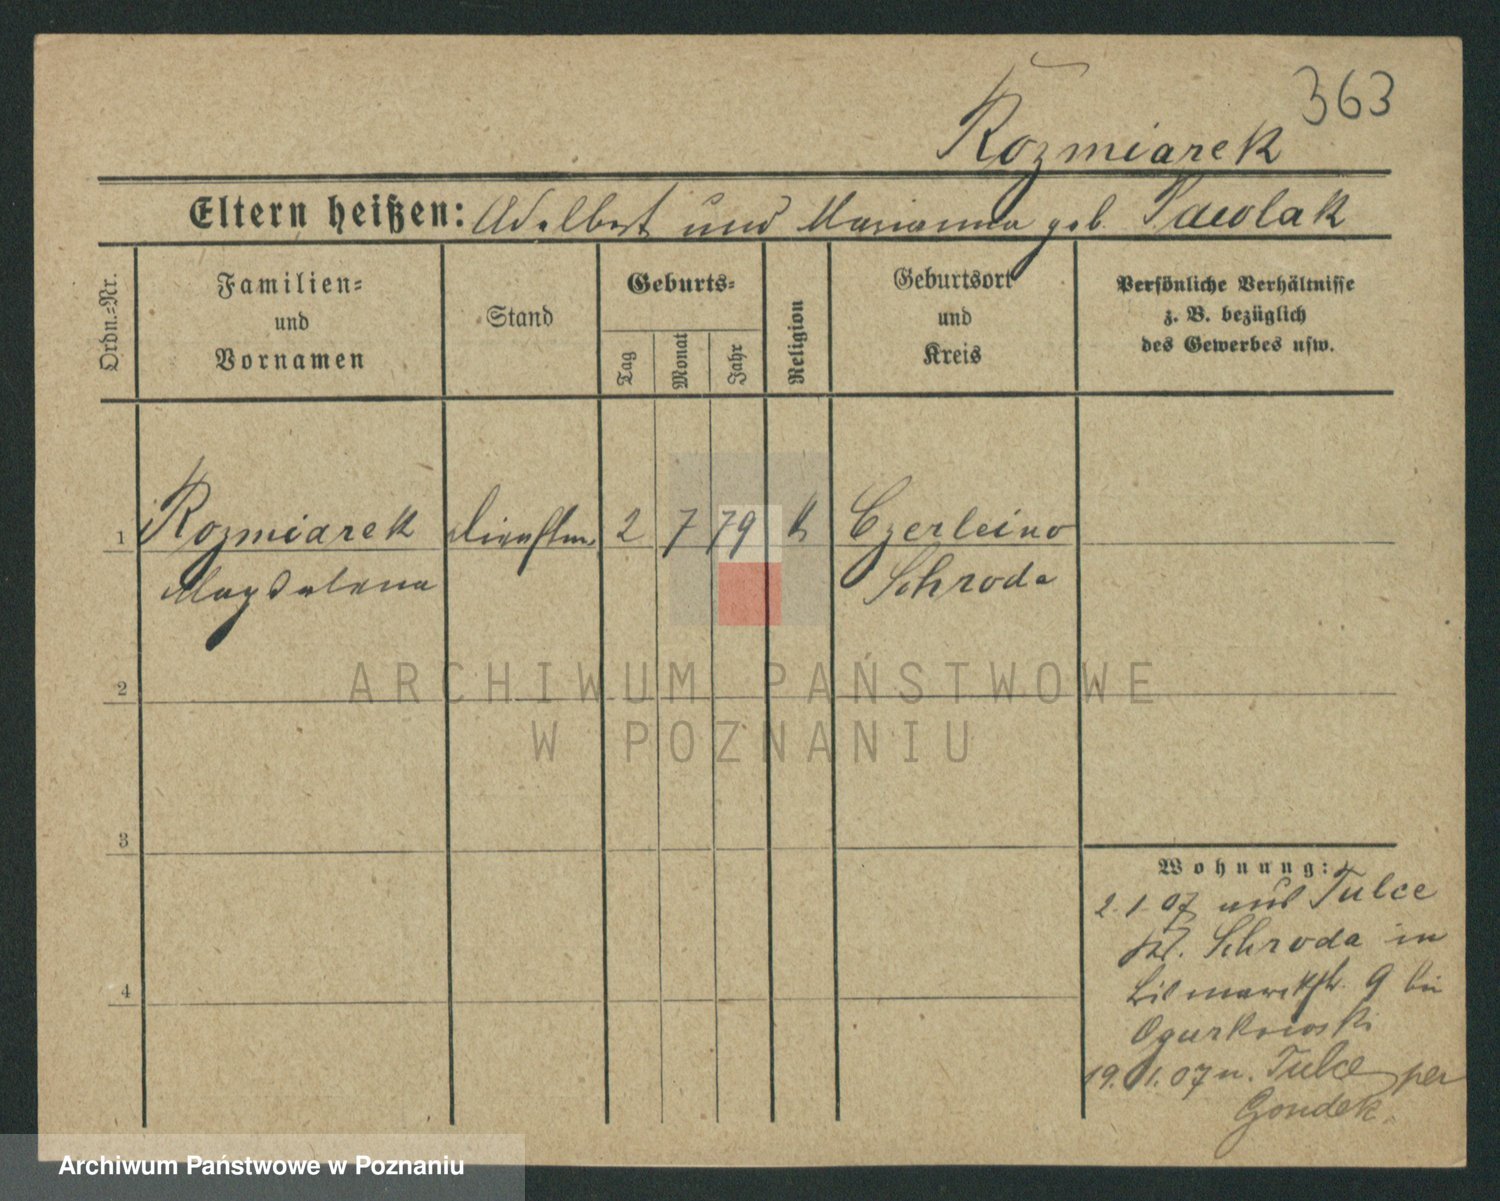 363
Rozmiarek
Eltern heißen: Adelbert und Marianna geb. Pawlak
Ordn.-Nr.
Familien-
und
Vornamen
Stand
Geburts-
Tag
Monat
Jahr
Religion
Geburtsort
und
Kreis
Persönliche Verhältnisse
z. B. bezüglich
des Gewerbes usw.
1 Rozmiarek Dienstm. 2 7 79 k Czerleino
Magdalena Schroda
2
3
4
Wohnung:
2.1.07 aus Tulce
Kr. Schroda in
Bismarckstr. 9 bei
Ogurkowski
19.1.07 n. Tulce per
Gondek.
ARCHIWUM PAŃSTWOWE
W POZNANIU
Archiwum Państwowe w Poznaniu